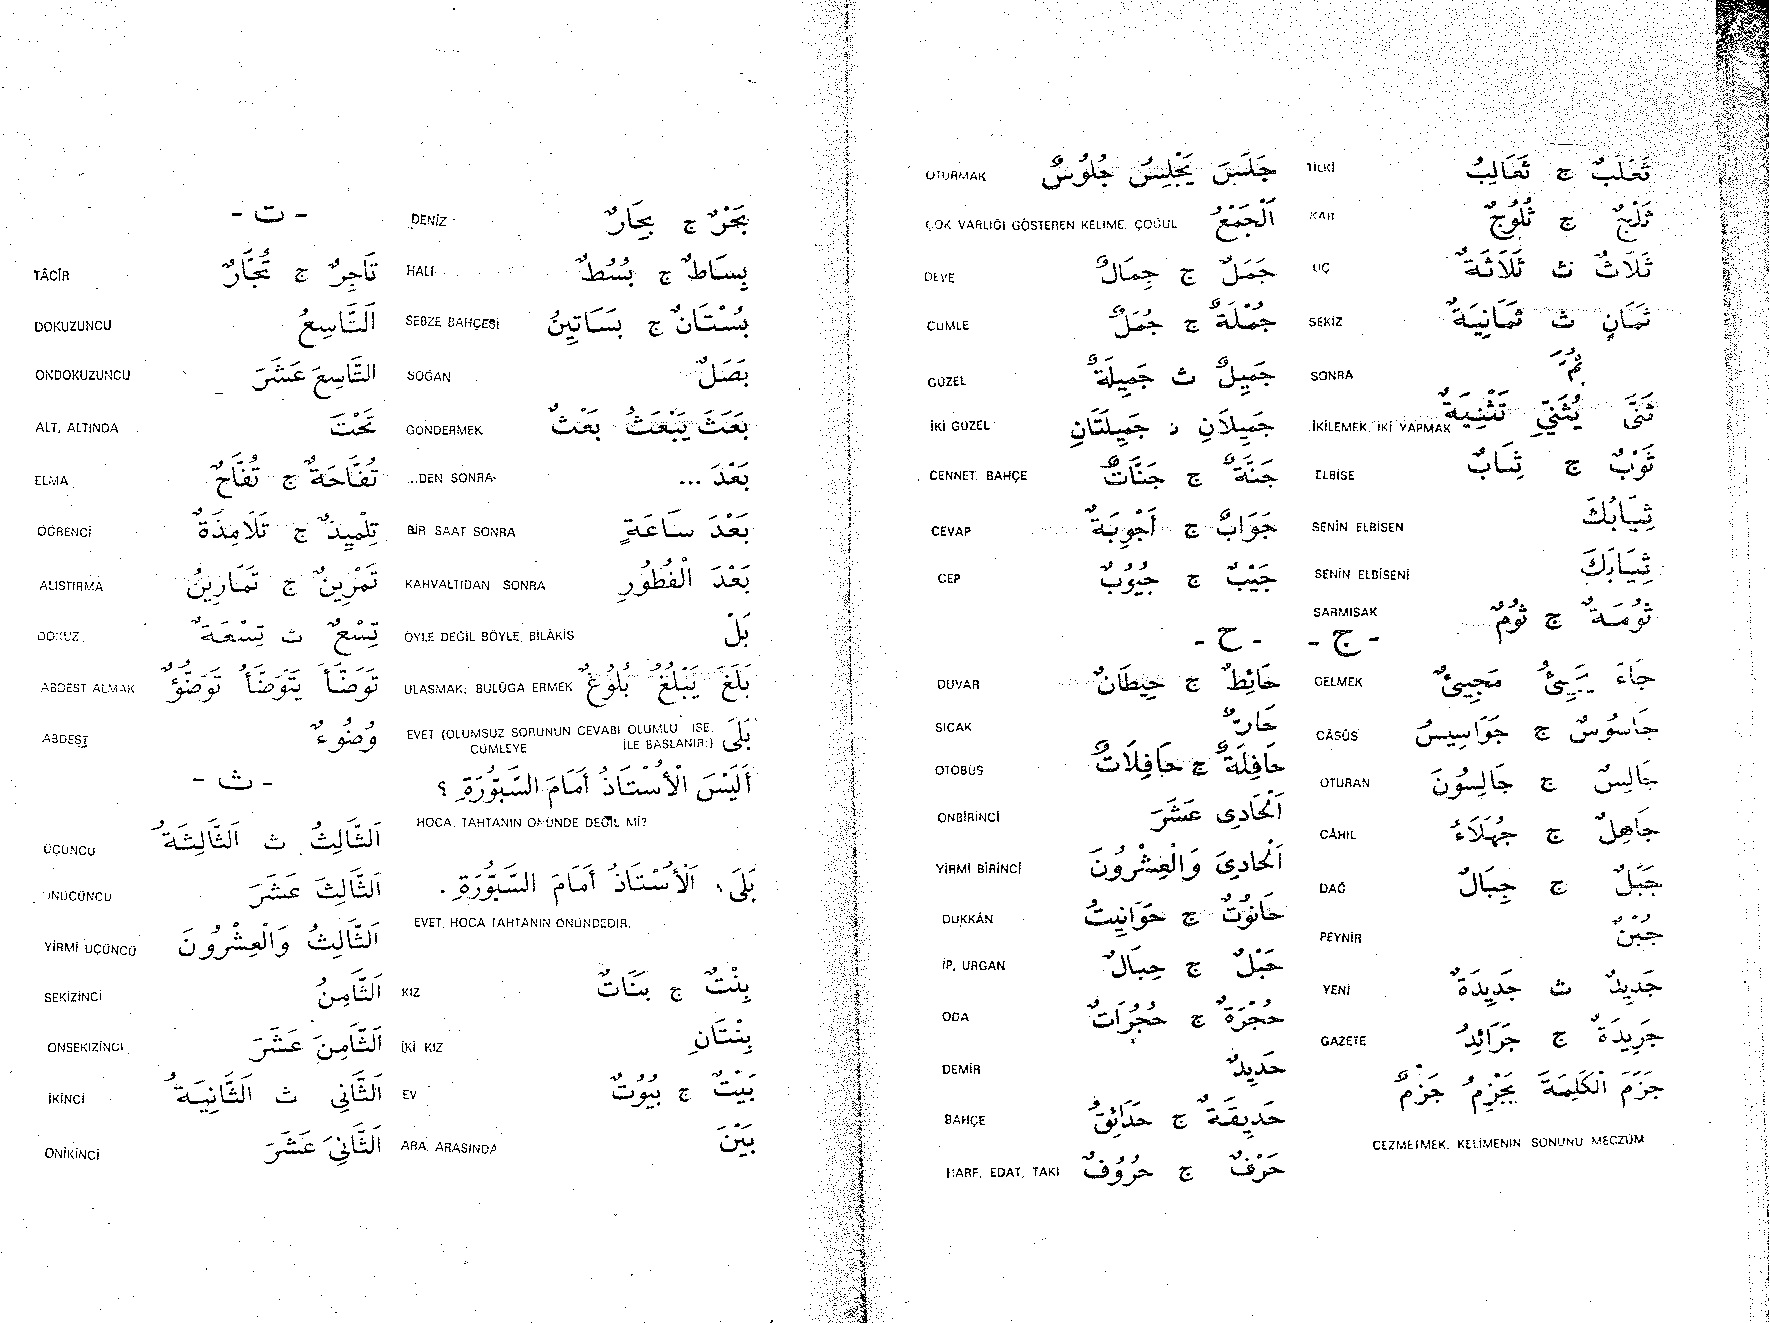 بَحْرٌ ج بِحَارٌ DENİZ
بِسَاطٌ ج بُسُطٌ HALI
بُسْتَانٌ ج بَسَاتِينُ SEBZE BAHÇESİ
بَصَلٌ SOĞAN
بَعَثَ يَبْعَثُ بَعْثٌ GÖNDERMEK
بَعْدَ ... ...DEN SONRA
بَعْدَ سَاعَةٍ BİR SAAT SONRA
بَعْدَ الْفَطُورِ KAHVALTIDAN SONRA
بَلْ ÖYLE DEĞİL BÖYLE, BİLÂKİS
بَلَغَ يَبْلُغُ بُلُوغٌ ULAŞMAK; BULÛĞA ERMEK
بَلَى EVET (OLUMSUZ SORUNUN CEVABI OLUMLU İSE,
CÜMLEYE İLE BAŞLANIR:)
أَلَيْسَ الْأُسْتَاذُ أَمَامَ السَّبُّورَةِ ؟
HOCA, TAHTANIN ÖNÜNDE DEĞİL Mİ?
بَلَى، اَلْأُسْتَاذُ أَمَامَ السَّبُّورَةِ .
EVET, HOCA TAHTANIN ÖNÜNDEDİR.
بِنْتٌ ج بَنَاتٌ KIZ
بِنْتَانِ İKİ KIZ
بَيْتٌ ج بُيُوتٌ EV
بَيْنَ ARA, ARASINDA
- ت -
تَاجِرٌ ج تُجَّارٌ TÂCİR
اَلتَّاسِعُ DOKUZUNCU
اَلتَّاسِعَ عَشَرَ ONDOKUZUNCU
تَحْتَ ALT, ALTINDA
تُفَّاحَةٌ ج تُفَّاحٌ ELMA
تِلْمِيذٌ ج تَلَامِذَةٌ ÖĞRENCİ
تَمْرِينٌ ج تَمَارِينُ ALIŞTIRMA
تِسْعٌ ث تِسْعَةٌ DOKUZ
تَوَضَّأَ يَتَوَضَّأُ تَوَضُّؤٌ ABDEST ALMAK
وُضُوءٌ ABDEST
- ث -
اَلثَّالِثُ ث اَلثَّالِثَةُ ÜÇÜNCÜ
اَلثَّالِثَ عَشَرَ ONÜÇÜNCÜ
اَلثَّالِثُ وَالْعِشْرُونَ YİRMİ ÜÇÜNCÜ
اَلثَّامِنُ SEKİZİNCİ
اَلثَّامِنَ عَشَرَ ONSEKİZİNCİ
اَلثَّانِي ث اَلثَّانِيَةُ İKİNCİ
اَلثَّانِيَ عَشَرَ ONİKİNCİ
ثَعْلَبٌ ج ثَعَالِبُ TİLKİ
ثَلْجٌ ج ثُلُوجٌ KAR
ثَلَاثٌ ث ثَلَاثَةٌ ÜÇ
ثَمَانٍ ث ثَمَانِيَةٌ SEKİZ
ثُمَّ SONRA
ثَنَّى يُثَنِّي تَثْنِيَةٌ İKİLEMEK, İKİ YAPMAK
ثَوْبٌ ج ثِيَابٌ ELBİSE
ثِيَابُكَ SENİN ELBİSEN
ثِيَابَكَ SENİN ELBİSENİ
ثُومَةٌ ج ثُومٌ SARMISAK
- ج -
جَاءَ يَجِيئُ مَجِيئٌ GELMEK
جَاسُوسٌ ج جَوَاسِيسُ CÂSÛS
جَالِسٌ ج جَالِسُونَ OTURAN
جَاهِلٌ ج جُهَلَاءُ CÂHİL
جَبَلٌ ج جِبَالٌ DAĞ
جُبْنٌ PEYNİR
جَدِيدٌ ث جَدِيدَةٌ YENİ
جَرِيدَةٌ ج جَرَائِدُ GAZETE
جَزَمَ الْكَلِمَةَ يَجْزِمُ جَزْمٌ
CEZMETMEK, KELİMENİN SONUNU MECZÛM
جَلَسَ يَجْلِسُ جُلُوسٌ OTURMAK
اَلْجَمْعُ ÇOK VARLIĞI GÖSTEREN KELİME, ÇOĞUL
جَمَلٌ ج جِمَالٌ DEVE
جُمْلَةٌ ج جُمَلٌ CÜMLE
جَمِيلٌ ث جَمِيلَةٌ GÜZEL
جَمِيلَانِ ; جَمِيلَتَانِ İKİ GÜZEL
جَنَّةٌ ج جَنَّاتٌ CENNET, BAHÇE
جَوَابٌ ج أَجْوِبَةٌ CEVAP
جَيْبٌ ج جُيُوبٌ CEP
- ح -
حَائِطٌ ج حِيطَانٌ DUVAR
حَارٌّ SICAK
حَافِلَةٌ ج حَافِلَاتٌ OTOBÜS
اَلْحَادِيَ عَشَرَ ONBİRİNCİ
اَلْحَادِيَ وَالْعِشْرُونَ YİRMİ BİRİNCİ
حَانُوتٌ ج حَوَانِيتُ DÜKKÂN
حَبْلٌ ج حِبَالٌ İP, URGAN
حُجْرَةٌ ج حُجُرَاتٌ ODA
حَدِيدٌ DEMİR
حَدِيقَةٌ ج حَدَائِقُ BAHÇE
حَرْفٌ ج حُرُوفٌ HARF, EDAT, TAKI